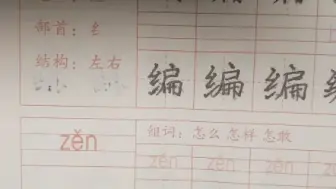 部首：纟
结构：左右
编 编 编 编
组词：怎么 怎样 怎敢
zěn
zěn zěn zěn zěn